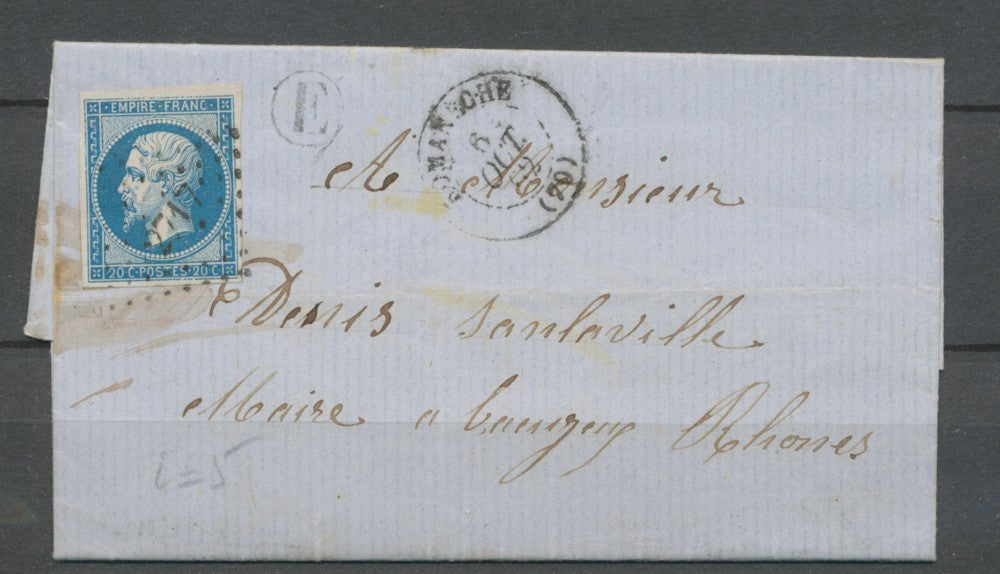 EMPIRE · FRANC ·
20 C · POSTES · 20 C
E
ROMANECHE
6
OCT
(70)
A Monsieur
Denis Sanlaville
Maire a Rhones